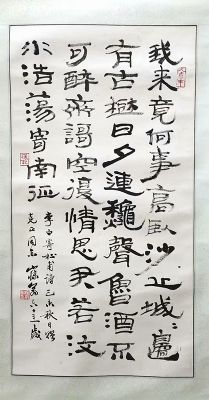 我来竟何事高臥沙丘城〻邊
有古樹日夕連龝聲魯酒不
可醉齊謌空復情思君若汶
水浩蕩寄南征
李白寄杜甫詩己未秋日
克正同志